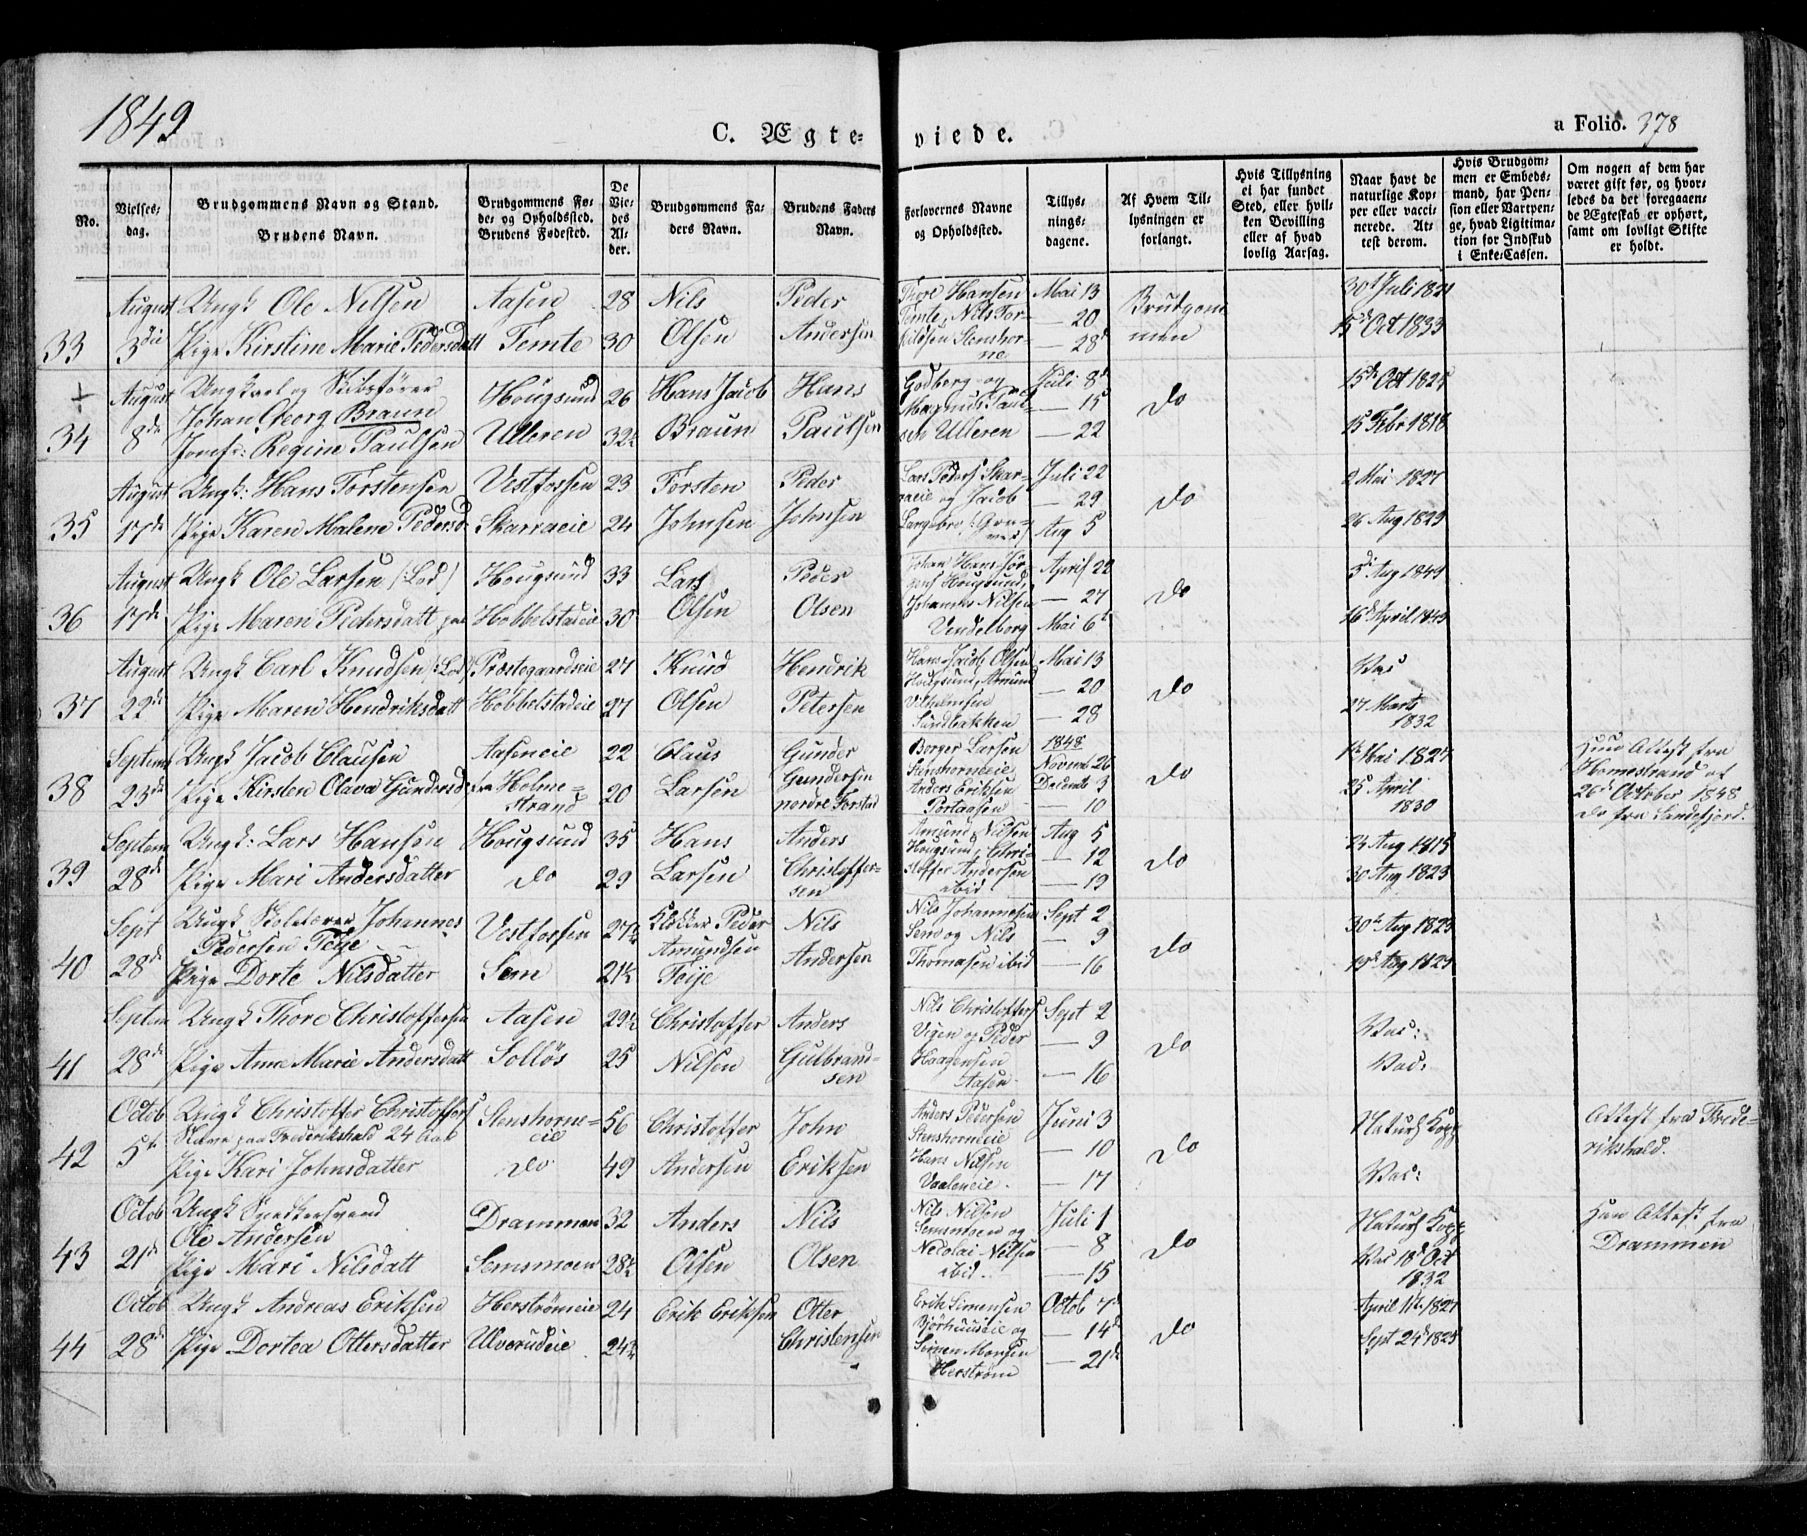 1849
C. Ægte-
viede.
a Folio. 378
No.
Vielses-
dag.
Brudgommens Navn og Stand.
Brudens Navn.
Brudgommens Fø-
de- og Opholdssted.
Brudens Fødested.
De
Vie-
des
Al-
der.
Brudgommens Fa-
ders Navn.
Brudens Faders
Navn.
Forlovernes Navne
og Opholdssted.
Tillys-
nings-
dagene.
Af Hvem Til-
lysningen er
forlangt.
Hvis Tillysning
ei har fundet
Sted, eller hvil-
ken Bevilling
eller af hvad
lovlig Aarsag.
Naar havt de
naturlige Kop-
per eller vacci-
nerede. At-
test derom.
Hvis Brudgom-
men er Embeds-
mand, har Pen-
sion eller Vartpen-
ge, hvad Legitima-
tion for Indskud
i Enke-Cassen.
Om nogen af dem har
været gift før, og hvor-
ledes da det foregaaen-
de Ægteskab er ophørt,
samt om lovligt Skifte
er holdt.
33
August
3die
Ungk Ole Nelsen
Pige Kirstine Marie Pedersdatt
Aasen
Temte
28
30
Nils
Olsen
Peder
Andersen
Thore Hansen
Temte, Nils Tor-
kildsen Stenshor-
ne
Mai 13
— 20
— 28d
Brudgom
men
30t Juli 1821
15d Oct 1833
+
34
August
8de
Ungkarl og Skibsfører
Johan Georg Braun
Jomfr: Regine Paulsen
Hougsund
Ulleren
26
32½
Hans Jacob
Braun
Hans
Paulsen
Godberg og
Magnus Paul-
sen Ulleren
Juli 8d
— 15
— 22
do
15de Oct 1825
15 Febr 1818
35
August
17de
Ungk: Hans Torstensen
Pige Karen Malene Pedersd.
Vestfossen
Skarraeie
23
24
Torsten
Johnsen
Peder
Johnsen
Lars Peders Skar-
raeie og Jacob
Juli 22
— 29
Aug 5
do
2 Mai 1827
26 Aug 1829
36
August
17de
Ungk Ole Larsen (Lod)
Pige Maren Pedersdatt
Hougsund
Hobbelstadeie
33
30
Lars
Olsen
Peder
Olsen
Johan Hans Jør-
gens Hougsund,
Johannes Nilsen
Vendelborg
April 22
— 27
Mai 6t
do
3d Aug 1849
16d April 1849
37
August
22de
Ungk Carl Knudsen (:Lod)
Pige Maren Hendriksdatt
Præstegaardseie
Hobbelstadeie
27
27
Knud
Olsen
Hendrik
Petersen
Hans Jacob Olsen
Hougsund, Amund
Vilhelmsen
Sundbakken
Mai 13
— 20
— 28
do
Vac
27 Marts
1832
38
Septemb
23de
Ungk Jacob Clausen
Pige Kirsten Olava Gundersd
Aaseneie
fra Holme-
strand
22
20
Claus
Larsen
Gunder
Gundersen
nordre Forstad
Borger Larsen
Stenshorneie
Anders Eriksen
Portaasen
1848
Novem 26
Decemb 3
— 10
do
1t Mai 1827
25 April
1830
Hun Attest fra
Homestrand af
26d October 1848
do fra Sandefjord.
39
Septem
28de
Ungk: Lars Hansen
Pige Mari Andersdatter
Hougsund
do
35
29
Hans
Larsen
Anders
Christoffer-
sen
Amund Nilsen
Hougsund, Chri-
stoffer Andersen
ibid.
Aug 5
— 12
— 19
do
24 Aug 1815
30 Aug 1823
40
Sept
28de
Ungk Skolelærer Johannes
Pedersen Teije
Pige Dorte Nilsdatter
Vestfossen
Sem
27½
21½
Klokker Peder
Amundsen
Teije
Nils
Andersen
Nils Johannesen
Sem og Nils
Thomasen ibid
Sept 2
— 9
— 16
do
30te Aug 1823
19de Aug 1829
41
Septem
28de
Ungk Thore Christoffersen
Pige Anne Marie Andersdatt
Aasen
Solløs
29½
25
Christoffer
Nilsen
Anders
Gulbrand-
sen
Nils Christoffers
Vigen og Peder
Haagensen
Aasen.
Sept 2
— 9
— 16
do
Vac:
Vac:
42
Octob
5te
Ungk Christoffer Christoffers
Slave paa Frederikshald 24 Aar
Pige Kari Johnsdatter
Stenshorne-
eie
do
56
49
Christoffer
Andersen
John
Eriksen
Anders Pedersen
Stenshorneie
Hans Nilsen
Vaaleneie.
Juni 3
— 10
— 17
do
Naturl Kopp
Vac:
Attest fra Frede-
rikshald.
43
Octob
21de
Ungk Snedkersvend
Ole Andersen
Pige Mari Nilsdatt
Drammen
Semsmoen
32
28½
Anders
Olsen
Nils
Olsen
Nils Nilsen
Semsmoen og
Nicolai Nilsen
ibid.
Juli 1
— 8
— 15
do
Naturl Kopp
Vac 18d Oct
1832
Han Attest fra
Drammen
44
Octob
28de
Ungk Andreas Eriksen
Pige Dortea Ottersdatter
Herstrømeie
Ulverudeie
24
24¾
Erik Eriksen
Otter
Christensen
Erik Simensen
Bjørhuuseie og
Simen Monsen
Herstrøm
Octob 7d
— 14d
— 21de
do
April 11t 1827
Sept 24d 1825